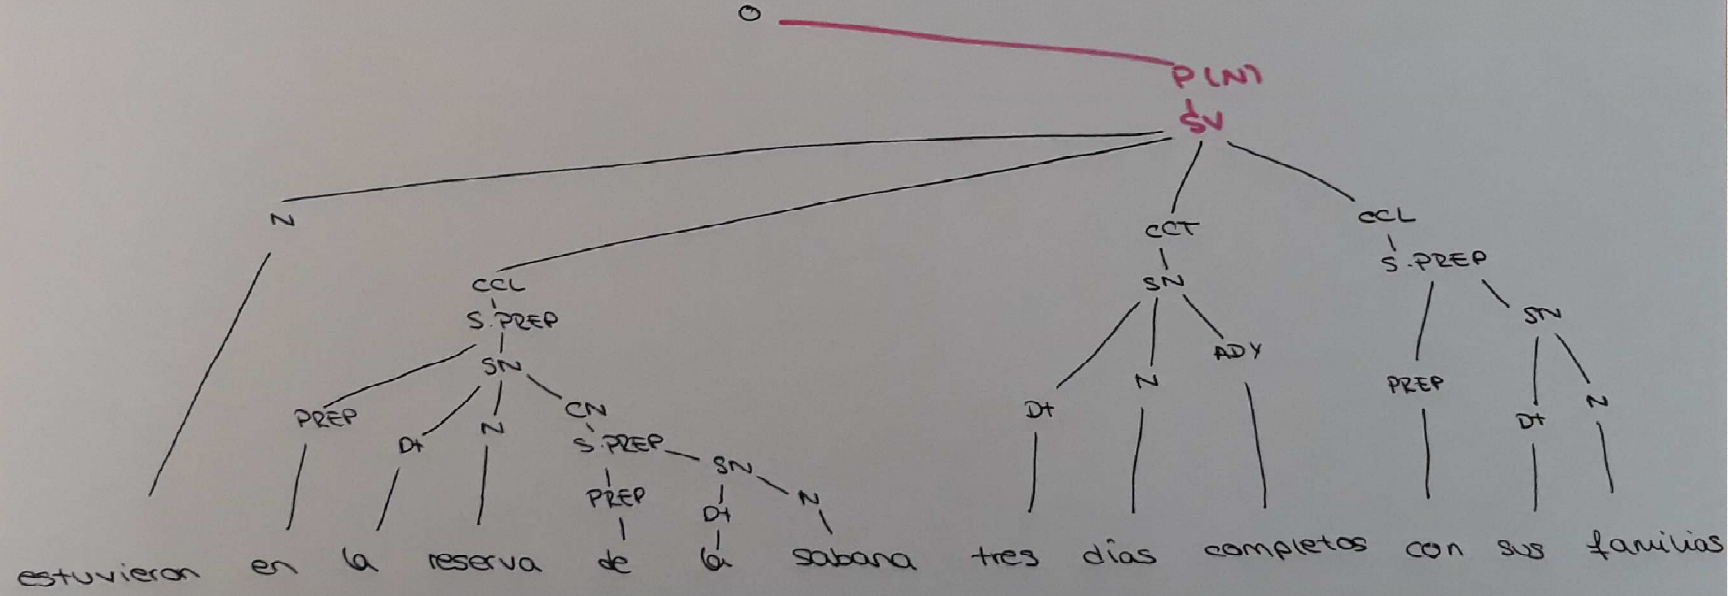 O
P(N)
SV
N
CCL
S.PREP
SN
PREP
Dt
N
CN
S.PREP
PREP
SN
Dt
N
CCT
SN
Dt
N
ADY
CCL
S.PREP
PREP
SN
Dt
N
estuvieron en la reserva de la sabana tres días completos con sus familias